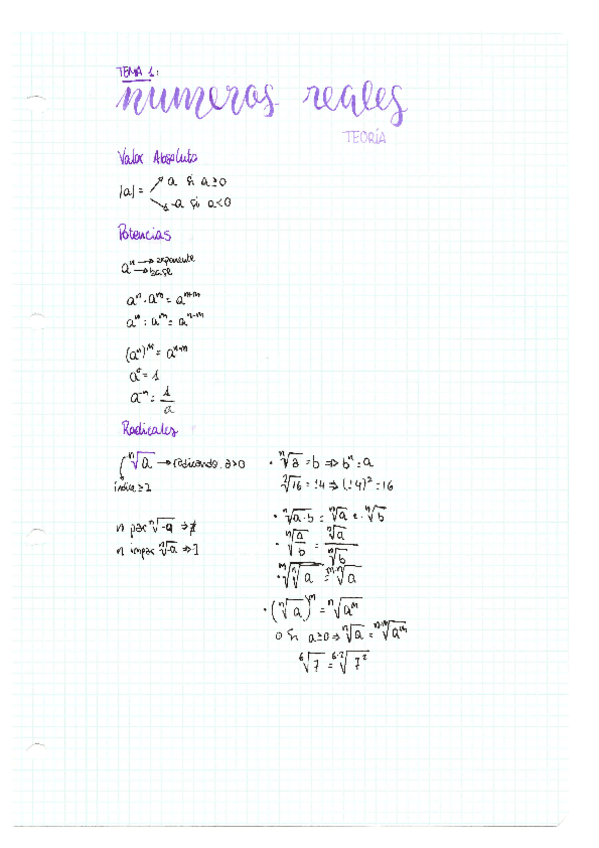 TEMA 1:
números reales
TEORÍA
Valor Absoluto
|a| =
a si a≥0
-a si a<0
Potencias
aⁿ → exponente
→ base
aⁿ · aᵐ = aⁿ⁺ᵐ
aⁿ : aᵐ = aⁿ⁻ᵐ
(aⁿ)ᵐ =
a⁰ = 1
a⁻ⁿ = 1/a
Radicales
ⁿ√a → radicando
índice
n par ⁿ√-a ⇒ ∄
n impar ⁿ√-a ⇒ ∃
• ⁿ√a = b ⇒ bⁿ = a
²√16 = ±4 ⇒ (±4)² = 16
• ⁿ√a·b = ⁿ√a · ⁿ√b
• ⁿ√a/b = ⁿ√a / ⁿ√b
• ᵐ√ⁿ√a = ᵐ·ⁿ√a
• (ⁿ√a)ᵐ = ⁿ√aᵐ
o Si a≥0 ⇒ ⁿ√a = ⁿ·ᵐ√aᵐ
⁶√7 = ⁶·²√7²